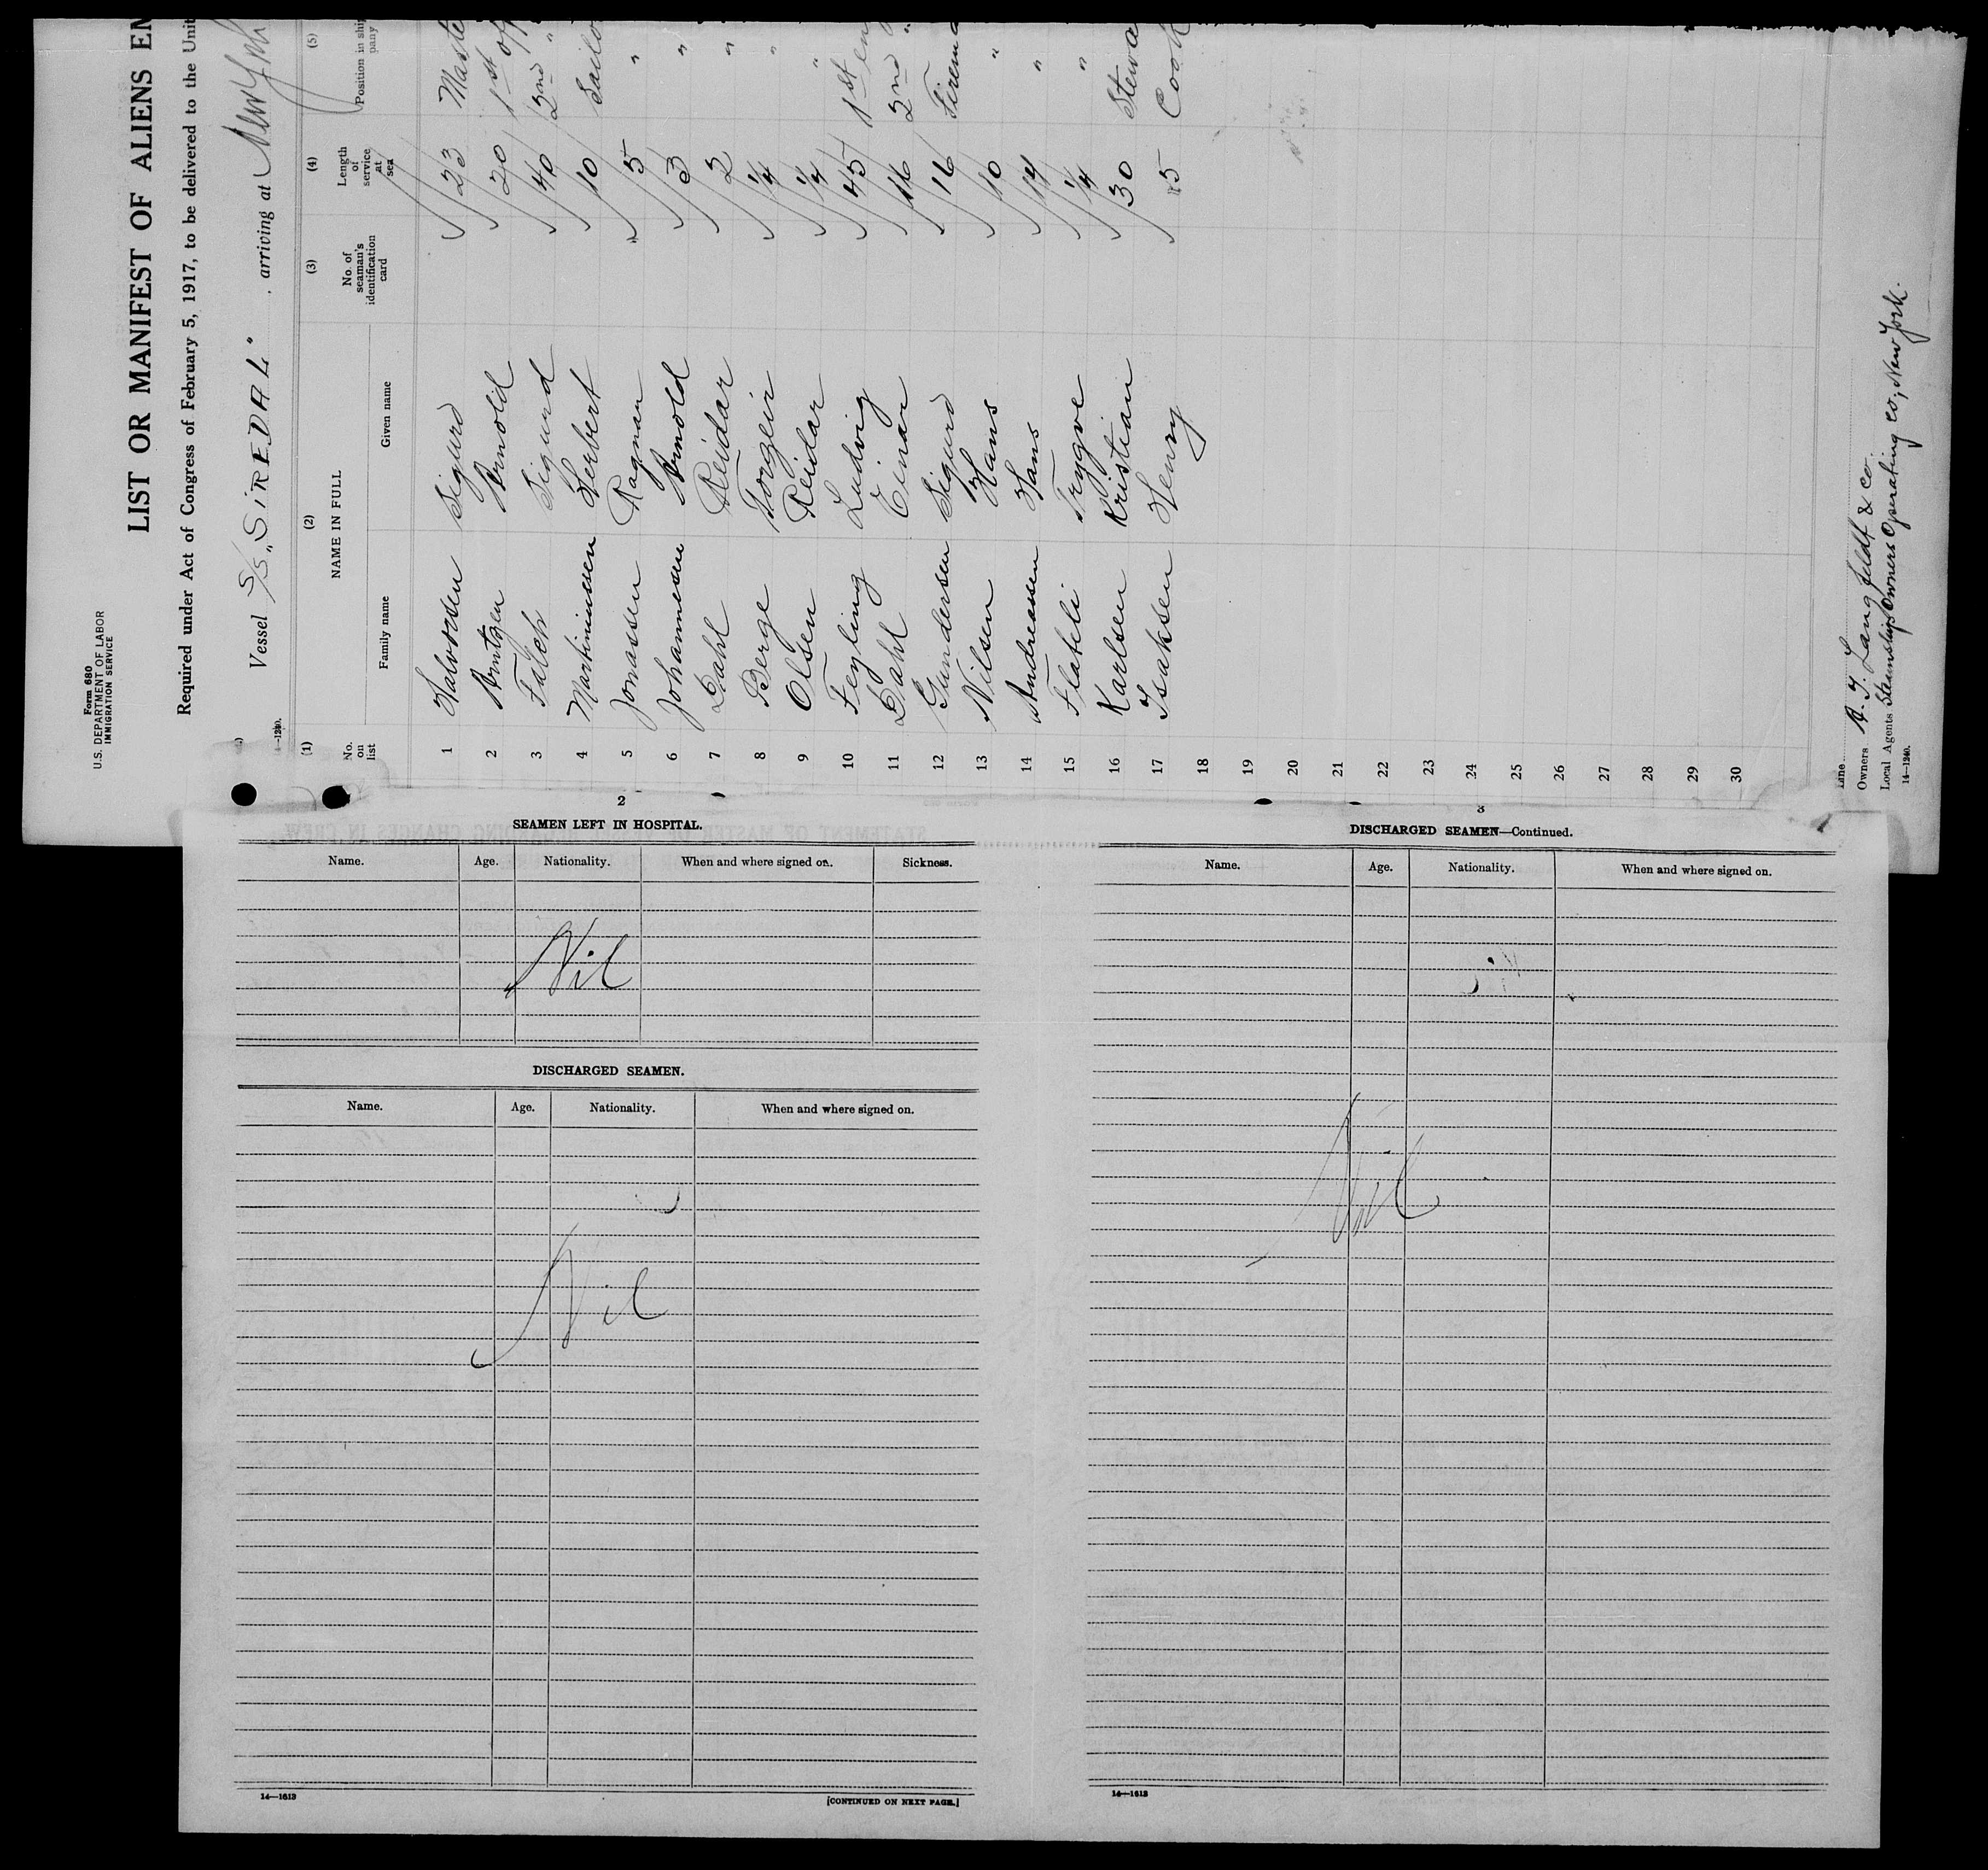 Form 680
U.S. DEPARTMENT OF LABOR
IMMIGRATION SERVICE
LIST OR MANIFEST OF ALIENS EM
Required under Act of Congress of February 5, 1917, to be delivered to the Unit
Vessel S/S. "SIREDAL" , arriving at New York
14—1240.
(1) (2) (3) (4) (5)
No. on list NAME IN FULL No. of seaman's identification card Length of service at sea Position in ship pany
Family name Given name
1 Halvorsen Sigurd 23 Maste
2 Arntzen Arnold 20 1st off
3 Falch Sigurd 40 2nd "
4 Martinussen Herbert 10 Sailo
5 Jonassen Ragnar 5 "
6 Johannesen Arnold 3 "
7 Dahl Reidar 2 "
8 Berge Torgeir 1/4 "
9 Olsen Reidar 1/4 "
10 Feyling Ludvig 45 1st eng
11 Dahl Einar 16 2nd "
12 Gundersen Sigurd 16 Firema
13 Nilsen Hans 10 "
14 Andreassen Hans 14 "
15 Flateli Trygve 1/4 "
16 Karlsen Kristian 30 Stewa
17 Isaksen Henry 5 Cook
18
19
20
21
22
23
24
25
26
27
28
29
30
Line
Owners A. T. Langfeldt & co.
Local Agents Steamship Owners Operating co, New York.
14—1240.
2
SEAMEN LEFT IN HOSPITAL.
Name. Age. Nationality. When and where signed on. Sickness.
Nil
DISCHARGED SEAMEN.
Name. Age. Nationality. When and where signed on.
Nil
14—1613
[CONTINUED ON NEXT PAGE.]
3
DISCHARGED SEAMEN—Continued.
Name. Age. Nationality. When and where signed on.
Nil
14—1613